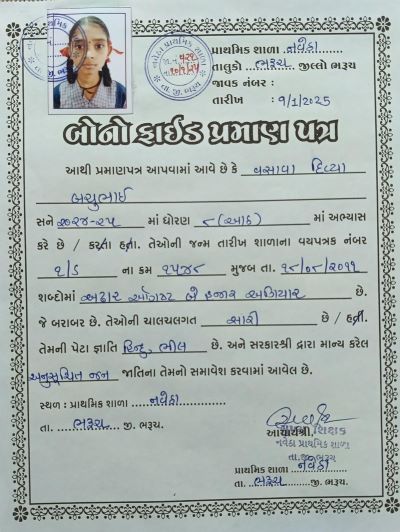 પ્રાથમિક શાળા નવેઠા
તાલુકો ભરૂચ જીલ્લો ભરૂચ
જાવક નંબર :
તારીખ : ૧/૧/2025
બોનો ફાઈડ પ્રમાણ પત્ર
આથી પ્રમાણપત્ર આપવામાં આવે છે કે વસાવા દિવ્યા
બચુભાઈ
સને ૨૦૨૪-૨૫ માં ધોરણ ૮ (આઠ) માં અભ્યાસ
કરે છે / કરતા હતા. તેઓની જન્મ તારીખ શાળાના વયપત્રક નંબર
૧/ડ ના ક્રમ ૧૫૪૮ મુજબ તા. ૧૮/૦૮/૨૦૧૧
શબ્દોમાં અઢાર ઓગષ્ટ બે હજાર અગિયાર છે.
જે બરાબર છે. તેઓની ચાલચલગત સારી છે / હતી.
તેમની પેટા જ્ઞાતિ હિન્દુ, ભીલ છે. અને સરકારશ્રી દ્વારા માન્ય કરેલ
અનુસૂચિત જન જાતિના તેમનો સમાવેશ કરવામાં આવેલ છે.
સ્થળ : પ્રાથમિક શાળા નવેઠા
તા. ભરૂચ જી. ભરૂચ.
આચાર્યશ્રી
શિક્ષક
નવેઠા પ્રાથમિક શાળા
તા.જી.ભરૂચ
પ્રાથમિક શાળા નવેઠા
તા. ભરૂચ જી. ભરૂચ.